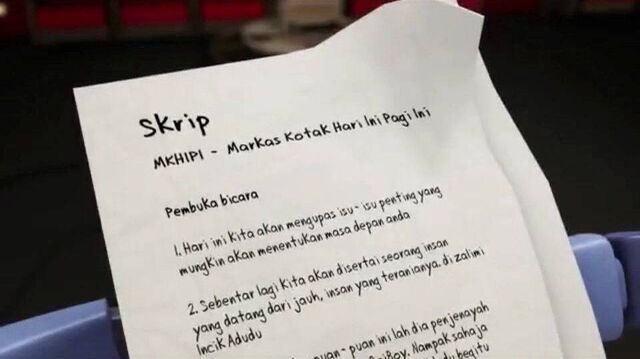 Skrip
MKHIPI - Markas Kotak Hari Ini Pagi Ini
Pembuka bicara
1. Hari ini kita akan mengupas isu - isu penting yang
mungkin akan menentukan masa depan anda
2. Sebentar lagi kita akan disertai seorang insan
yang datang dari jauh, insan yang teraniaya, di zalimi
Incik Adudu
puan - puan ini lah dia penjenayah
Boy. Nampak sahaja
begitu